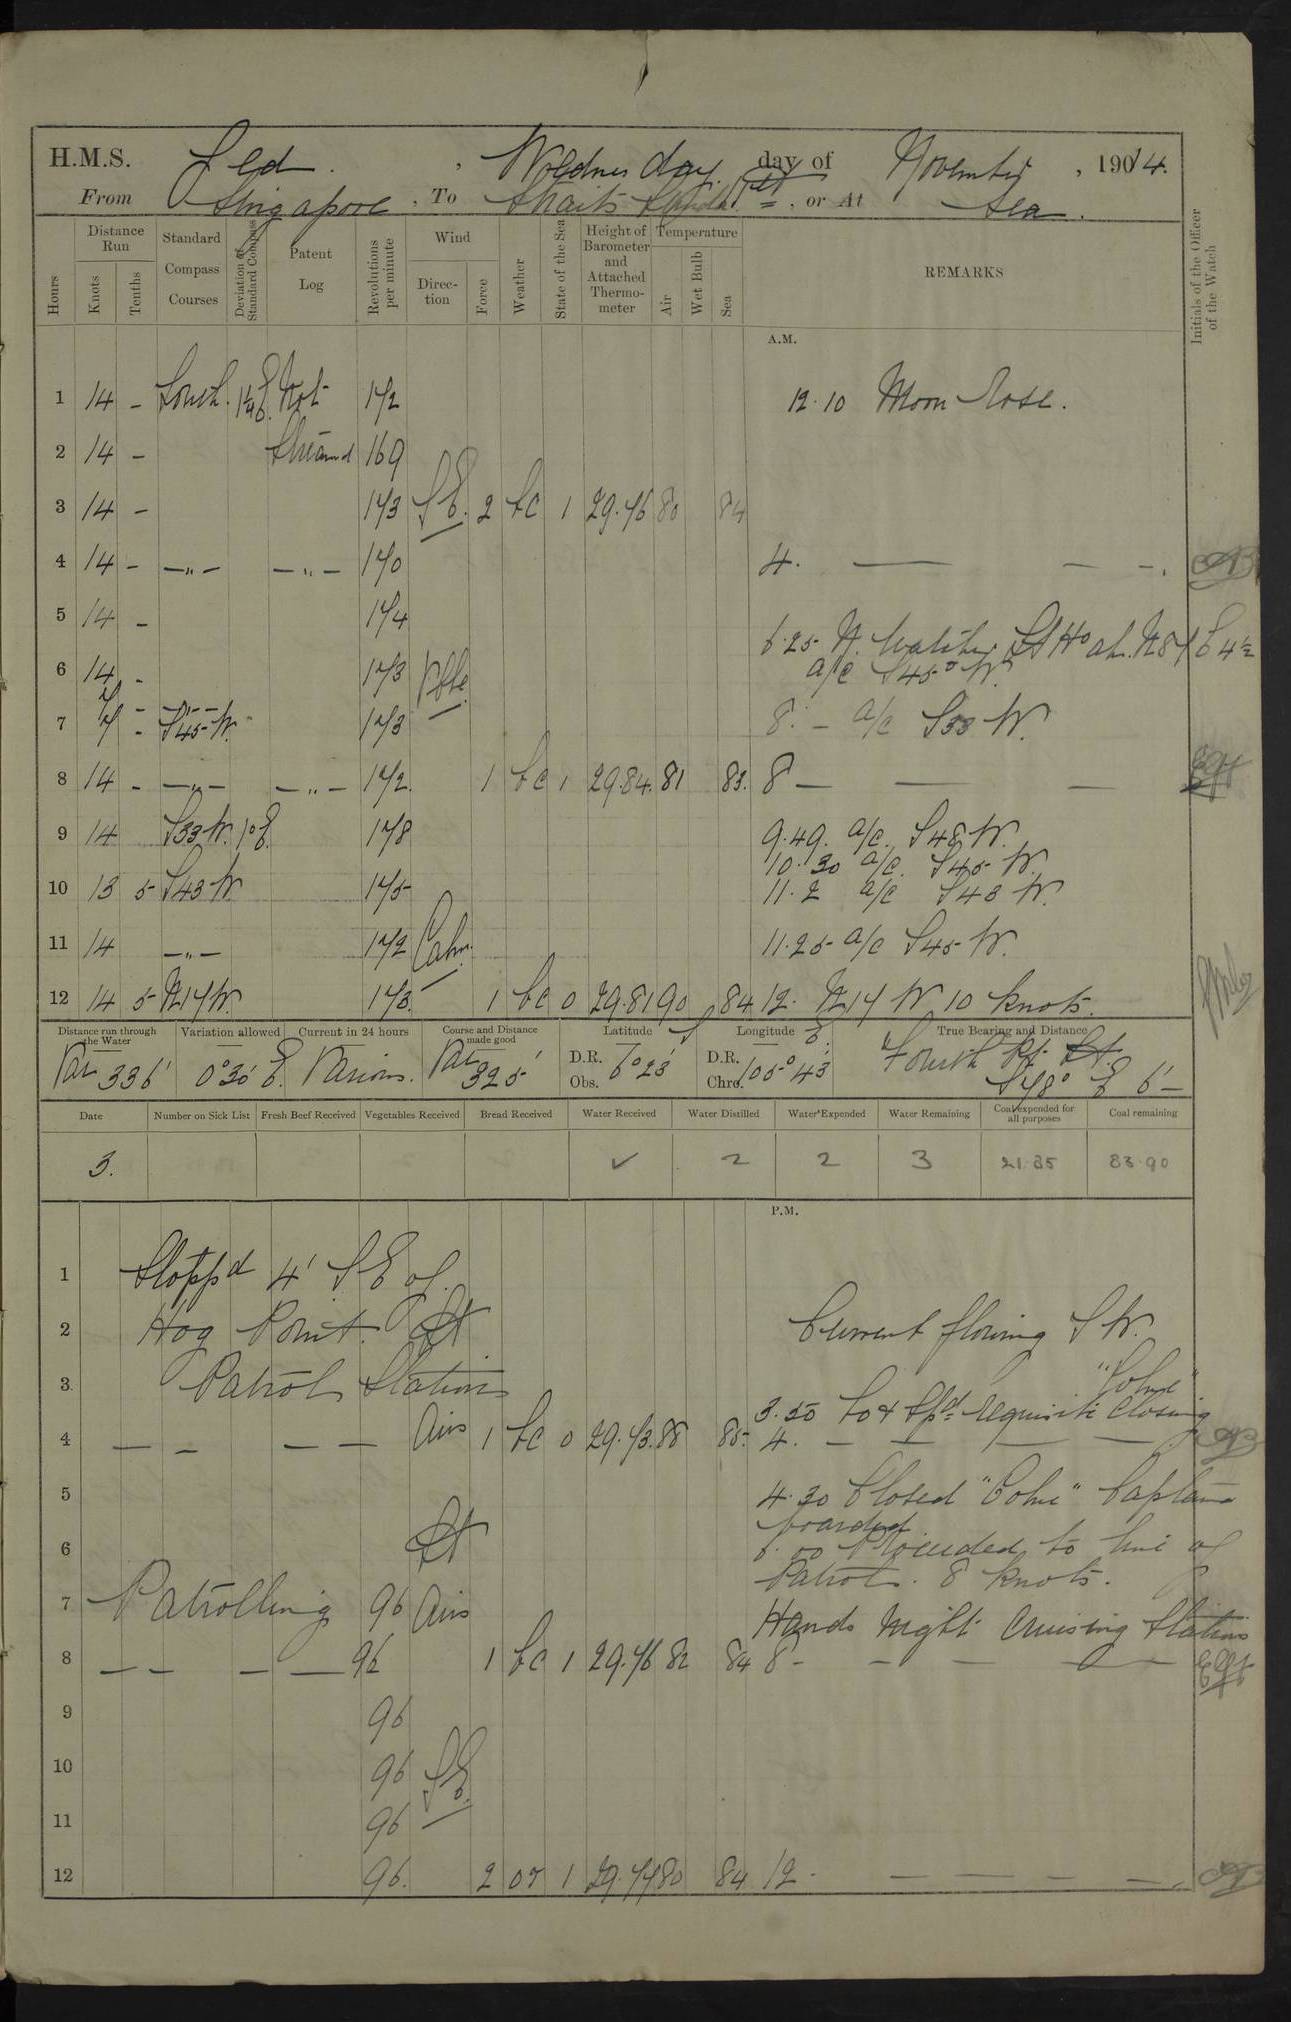 H.M.S. , Wednesday day of November , 1914.
From Singapore , To Straits , or At Sea.
Hours
Distance Run
Knots
Tenths
Standard Compass Courses
Deviation of Standard Compass
Patent Log
Revolutions per minute
Wind
Direction
Force
Weather
State of the Sea
Height of Barometer and Attached Thermometer
Temperature
Air
Wet Bulb
Sea
REMARKS
Initials of the Officer of the Watch
A.M.
1 14 - South. 1¼ E. Not 172 12.10 Moon rose.
2 14 - Streamed 169
3 14 - 173 S E. 2 bc 1 29.76 80 84
4 14 - -"- -"- 170 4. — — -.
5 14 - 174
6.25 N. Watcher Lt Ho ab. N 87 E 4
6 14 - 173 Vble. a/c S 45° W.
7 7 - -"-
7 - S 45 W. 173 8. - a/c S 33 W.
8 14 - -"- -"- 172. 1 bc 1 29.84. 81 83. 8 — — —
9 14 S 33 W. 1° E. 178 9.49. a/c. S 48 W.
10.30 a/c. S 45 W.
10 13 5 S 43 W 175 11.2 a/c S 43 W.
11 14 -"- 172 Calm. 11.25 a/c S 45 W.
12 14 5 N 17 W. 173. 1 bc 0 29.81 90 84 12. N 17 W 10 knots.
Distance run through the Water
Variation allowed
Current in 24 hours
Course and Distance made good
Latitude S
Longitude E.
True Bearing and Distance
336' 0°30' E. Various. 325' D.R. Obs. 6° 23' D.R. Chro. 105° 43' Fourth Pt. Lt.
S 78° E 6' —
Date
Number on Sick List
Fresh Beef Received
Vegetables Received
Bread Received
Water Received
Water Distilled
Water Expended
Water Remaining
Coal expended for all purposes
Coal remaining
3. ✓ 2 2 3 21.35 83.90
P.M.
1 Stopp'd 4' S E of
2 Hog Point. Lt Current flowing S W.
3. Patrol Station
3.50 requisite closing "Colne"
4 — - — — Airs 1 bc 0 29.73. 88 85. 4. — — — —
5 4.30 Closed "Colne" Captain
boarded.
6 Lt 6.00 Proceeded to line of
Patrol. 8 knots.
7 Patrolling 96 Airs Hands Night Cruising Stations
8 — — — — 96 1 bc 1 29.76 82 84 8 - — — — —
9 96
10 96 S E.
11 96
12 96. 2 1 29.77 80 84 12. — — — —.